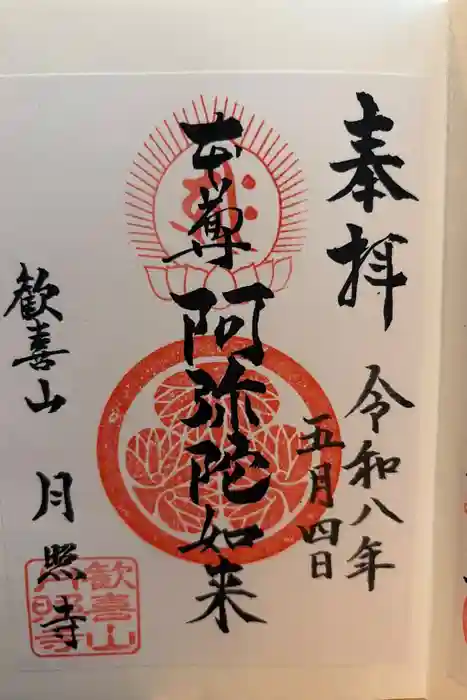 奉拝
令和八年
五月四日
本尊 阿弥陀如来
歓喜山 月照寺
歓喜山
月照寺